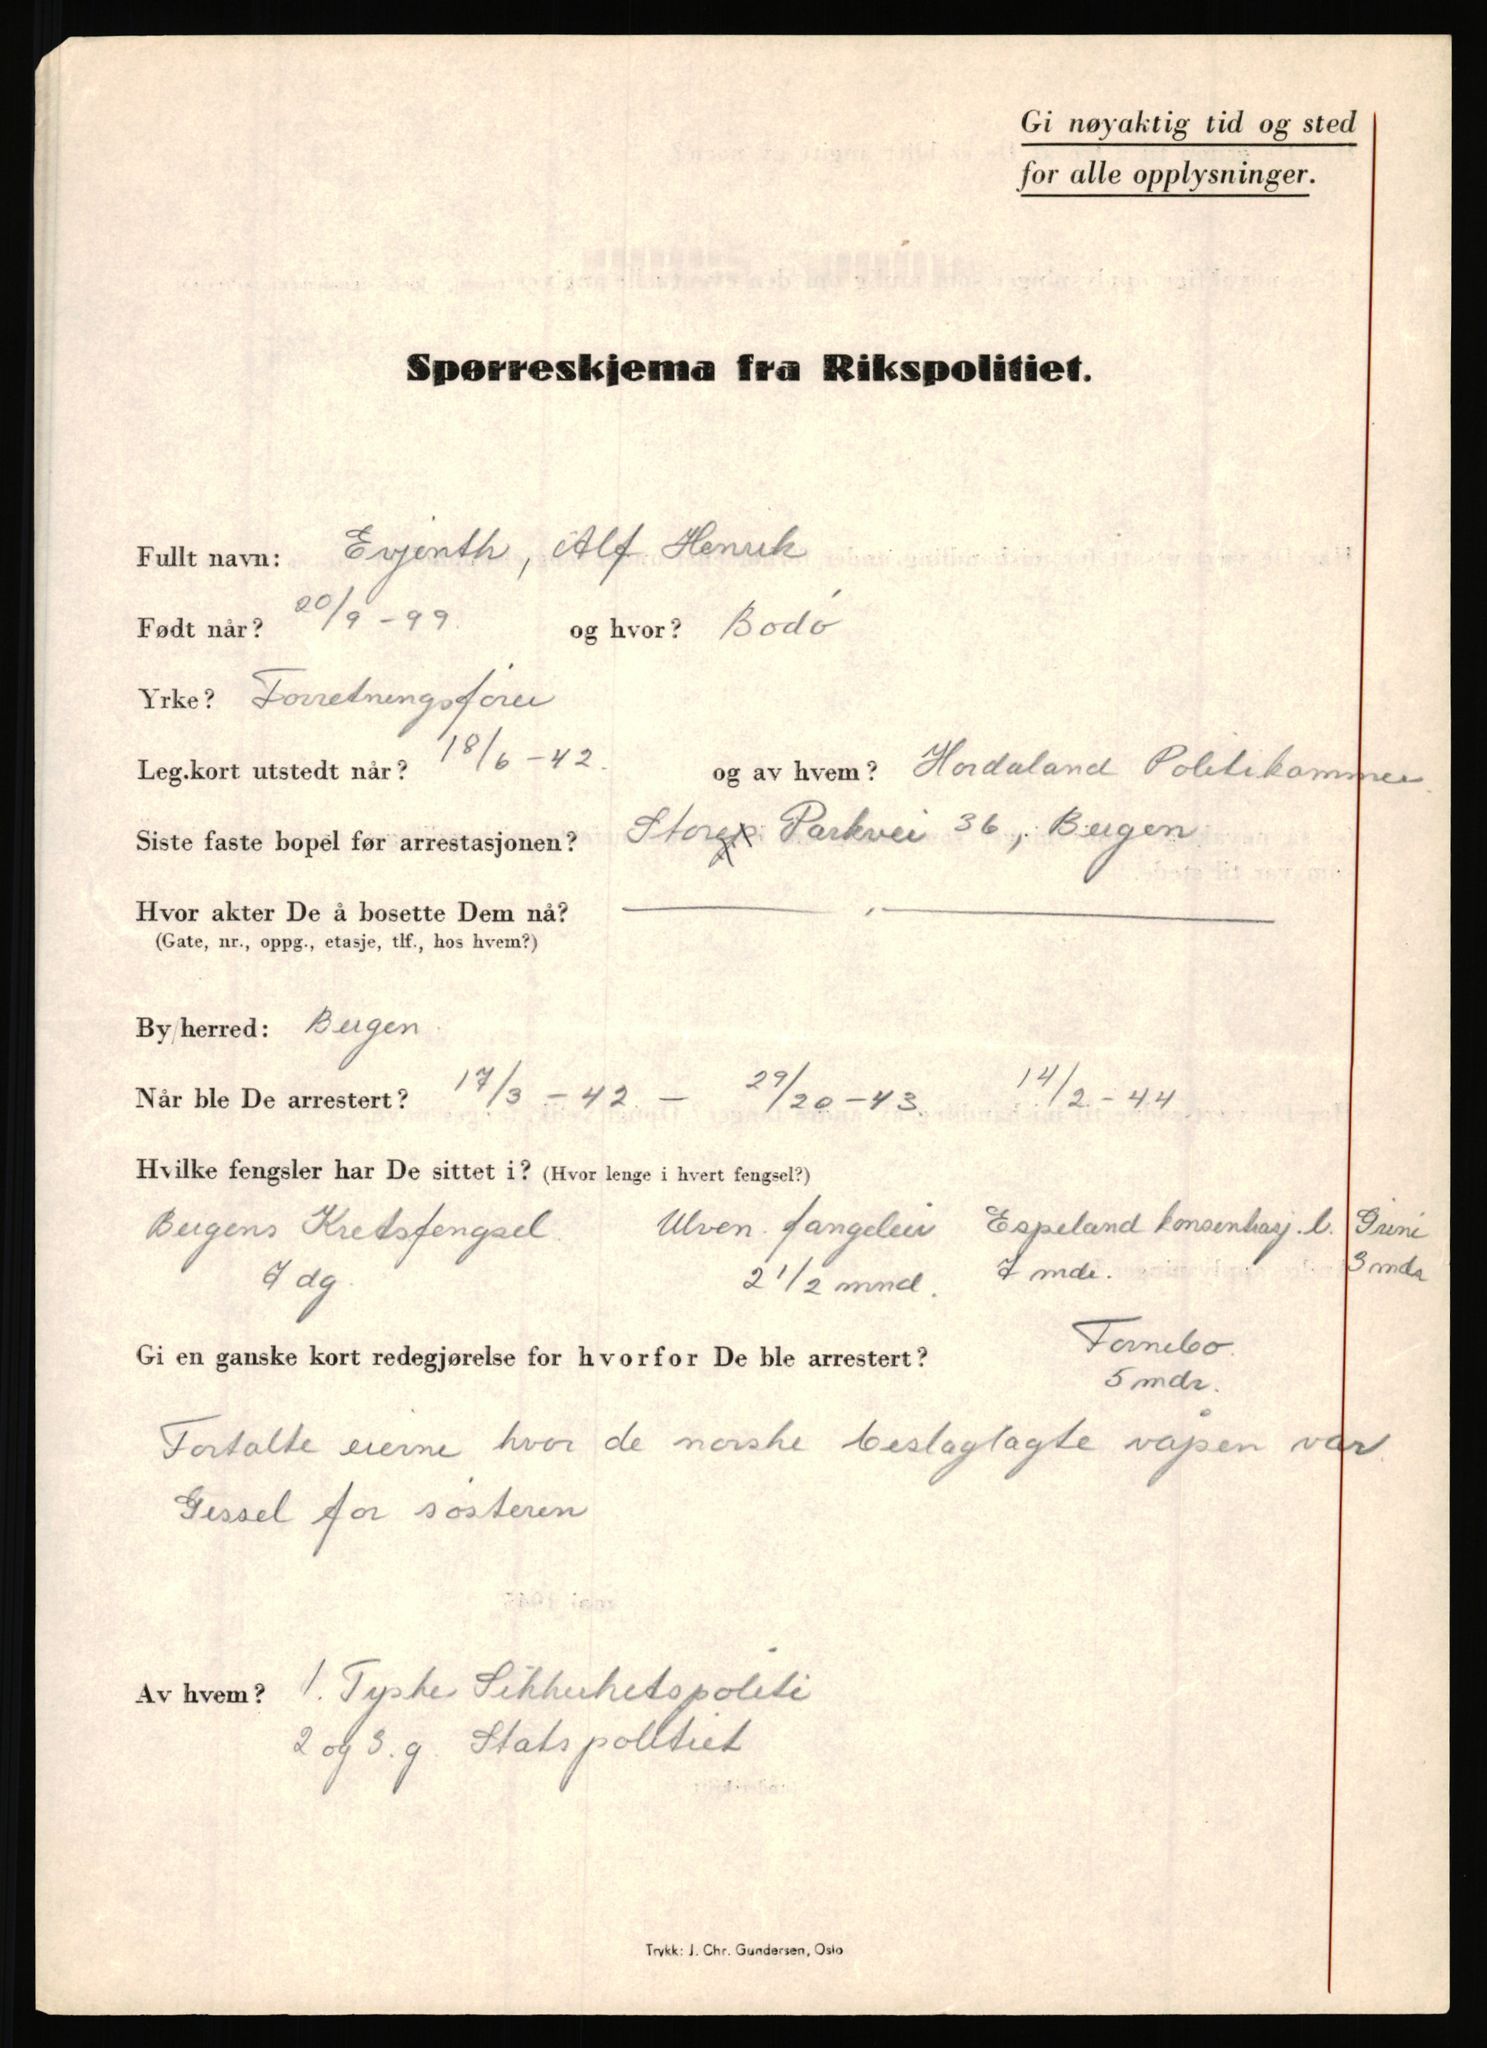 Gi nøyaktig tid og sted
for alle opplysninger.
Spørreskjema fra Rikspolitiet.
Fullt navn: Evjenth, Alf Henrik
Født når? 20/9 - 99. og hvor? Bodø
Yrke? Forretningsfører
Leg.kort utstedt når? 18/6 - 42. og av hvem? Hordaland Politikammer
Siste faste bopel før arrestasjonen? Parkvei 36, Bergen
Hvor akter De å bosette Dem nå?
(Gate, nr., oppg., etasje, tlf., hos hvem?)
By/herred: Bergen
Når ble De arrestert? 17/3 - 42 - 29/20 - 43. 14/2 - 44
Hvilke fengsler har De sittet i? (Hvor lenge i hvert fengsel?)
Bergens Kretsfengsel. Ulven fangeleir Espeland konsentrasj. l. Grini
7 dg. 2 1/2 mnd. 7 mdr. 3 mdr
Gi en ganske kort redegjørelse for hvorfor De ble arrestert? Fornebo.
5 mdr.
Fortalte eierne hvor de norske beslaglagte våpen var.
Gissel for søsteren
Av hvem? 1. Tyske Sikkerhetspoliti
2 og 3. g. Statspolitiet
Trykk: J. Chr. Gundersen, Oslo